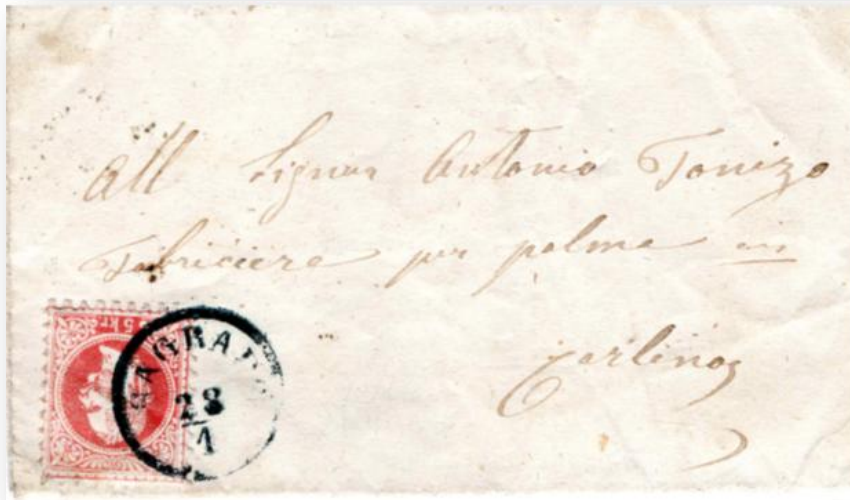 All Signor Antonio Tonizo
Fabriciere per palma in
Carlino
5 kr
SAGRADO
28
1